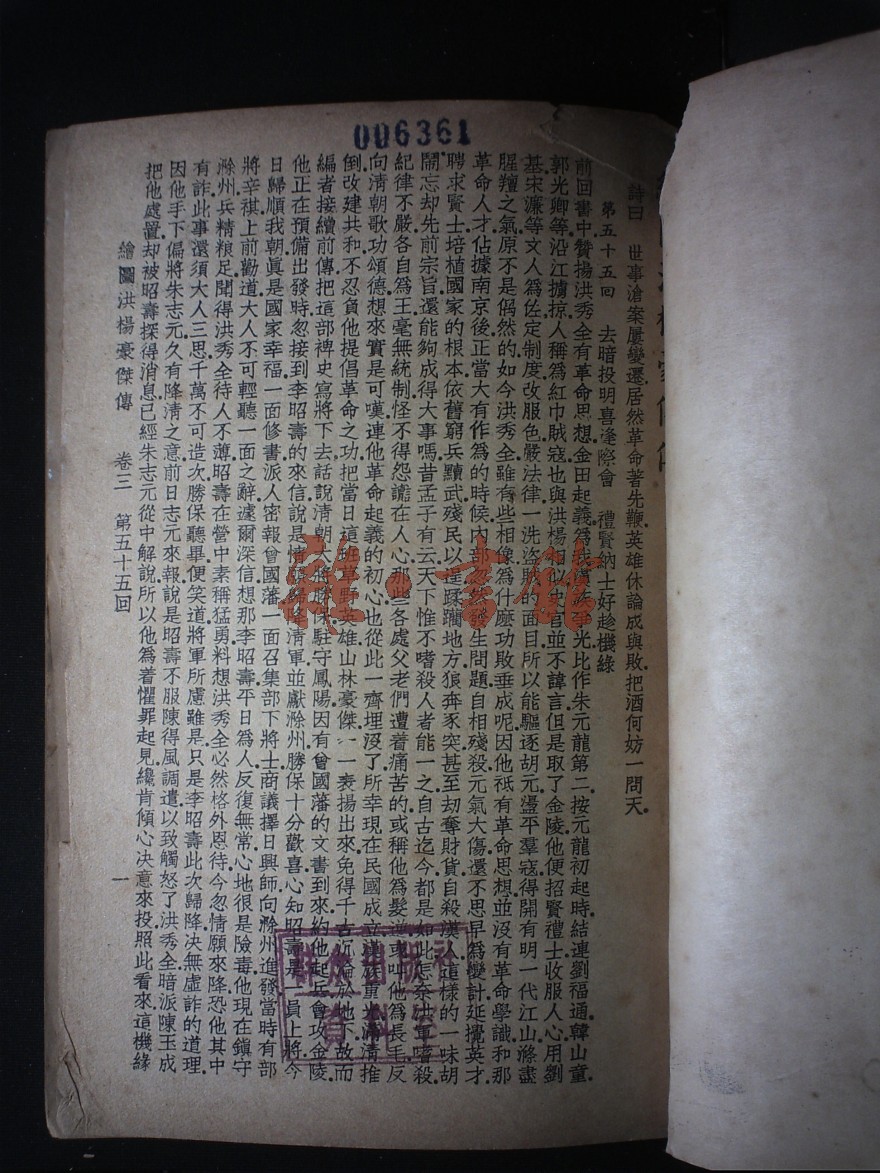 006361
詩曰 世事滄桑屢變遷居然革命著先鞭英雄休論成與敗把酒何妨一問天
第五十五回 去暗投明喜逢際會 禮賢納士好趁機緣
前回書中贊揚洪秀全有革命思想金田起義爲我漢族爭光比作朱元龍第二按元龍初起時結連劉福通韓山童
郭光卿等沿江擄掠人稱爲紅巾賊寇也與洪楊相似史官並不諱言但是取了金陵他便招賢禮士收服人心用劉
基宋濂等文人爲佐定制度改服色嚴法律一洗盜賊的面目所以能驅逐胡元盪平羣寇得開有明一代江山滌盡
腥羶之氣原不是偶然的如今洪秀全雖有些相像爲什麼功敗垂成呢因他祇有革命思想並沒有革命學識和那
革命人才佔據南京後正當大有作爲的時候内部忽然發生問題自相殘殺元氣大傷還不思早爲變計延攬英才
聘求賢士培植國家的根本依舊窮兵黷武殘民以逞蹂躪地方狼奔豕突甚至劫奪財貨自殺漢人這樣的一味胡
鬧忘却先前宗旨還能夠成得大事嗎昔孟子有云天下惟不嗜殺人者能一之自古迄今都是如此怎奈洪軍嗜殺
紀律不嚴各自爲王毫無統制怪不得怨讟在人心那些各處父老們遭着痛苦的或稱他爲髮逆或叫他爲長毛反
向清朝歌功頌德想來實是可嘆連他革命起義的初心也從此一齊埋沒了所幸現在民國成立漢族重光滿清推
倒改建共和不忍負他提倡革命之功把當日這班草野英雄山林豪傑一一表揚出來免得千古沉淪於地下故而
編者接續前傳把這部裨史寫將下去話說清朝大將勝保駐守鳳陽因有曾國藩的文書到來約他起兵會攻金陵
他正在預備出發時忽接到李昭壽的來信說是情願歸降清軍並獻滁州勝保十分歡喜心知昭壽是一員上將今
日歸順我朝眞是國家幸福一面修書派人密報曾國藩一面召集部下將士商議擇日興師向滁州進發當時有部
將辛祺上前勸道大人不可輕聽一面之辭遽爾深信想那李昭壽平日爲人反復無常心地很是險毒他現在鎭守
滁州兵精粮足聞得洪秀全待人不薄昭壽在營中素稱猛勇料想洪秀全必然格外恩待今忽情願來降恐他其中
有詐此事還須大人三思千萬不可造次勝保聽畢便笑道將軍所慮雖是只是李昭壽此次歸降决無虛詐的道理
因他手下偏將朱志元久有降清之意前日志元來報說是昭壽不服陳得風調遣以致觸怒了洪秀全暗派陳玉成
把他處置却被昭壽探得消息已經朱志元從中解說所以他爲着懼罪起見纔肯傾心決意來投照此看來這機緣
繪圖洪楊豪傑傳 卷三 第五十五回 一
雜·書館
資料室